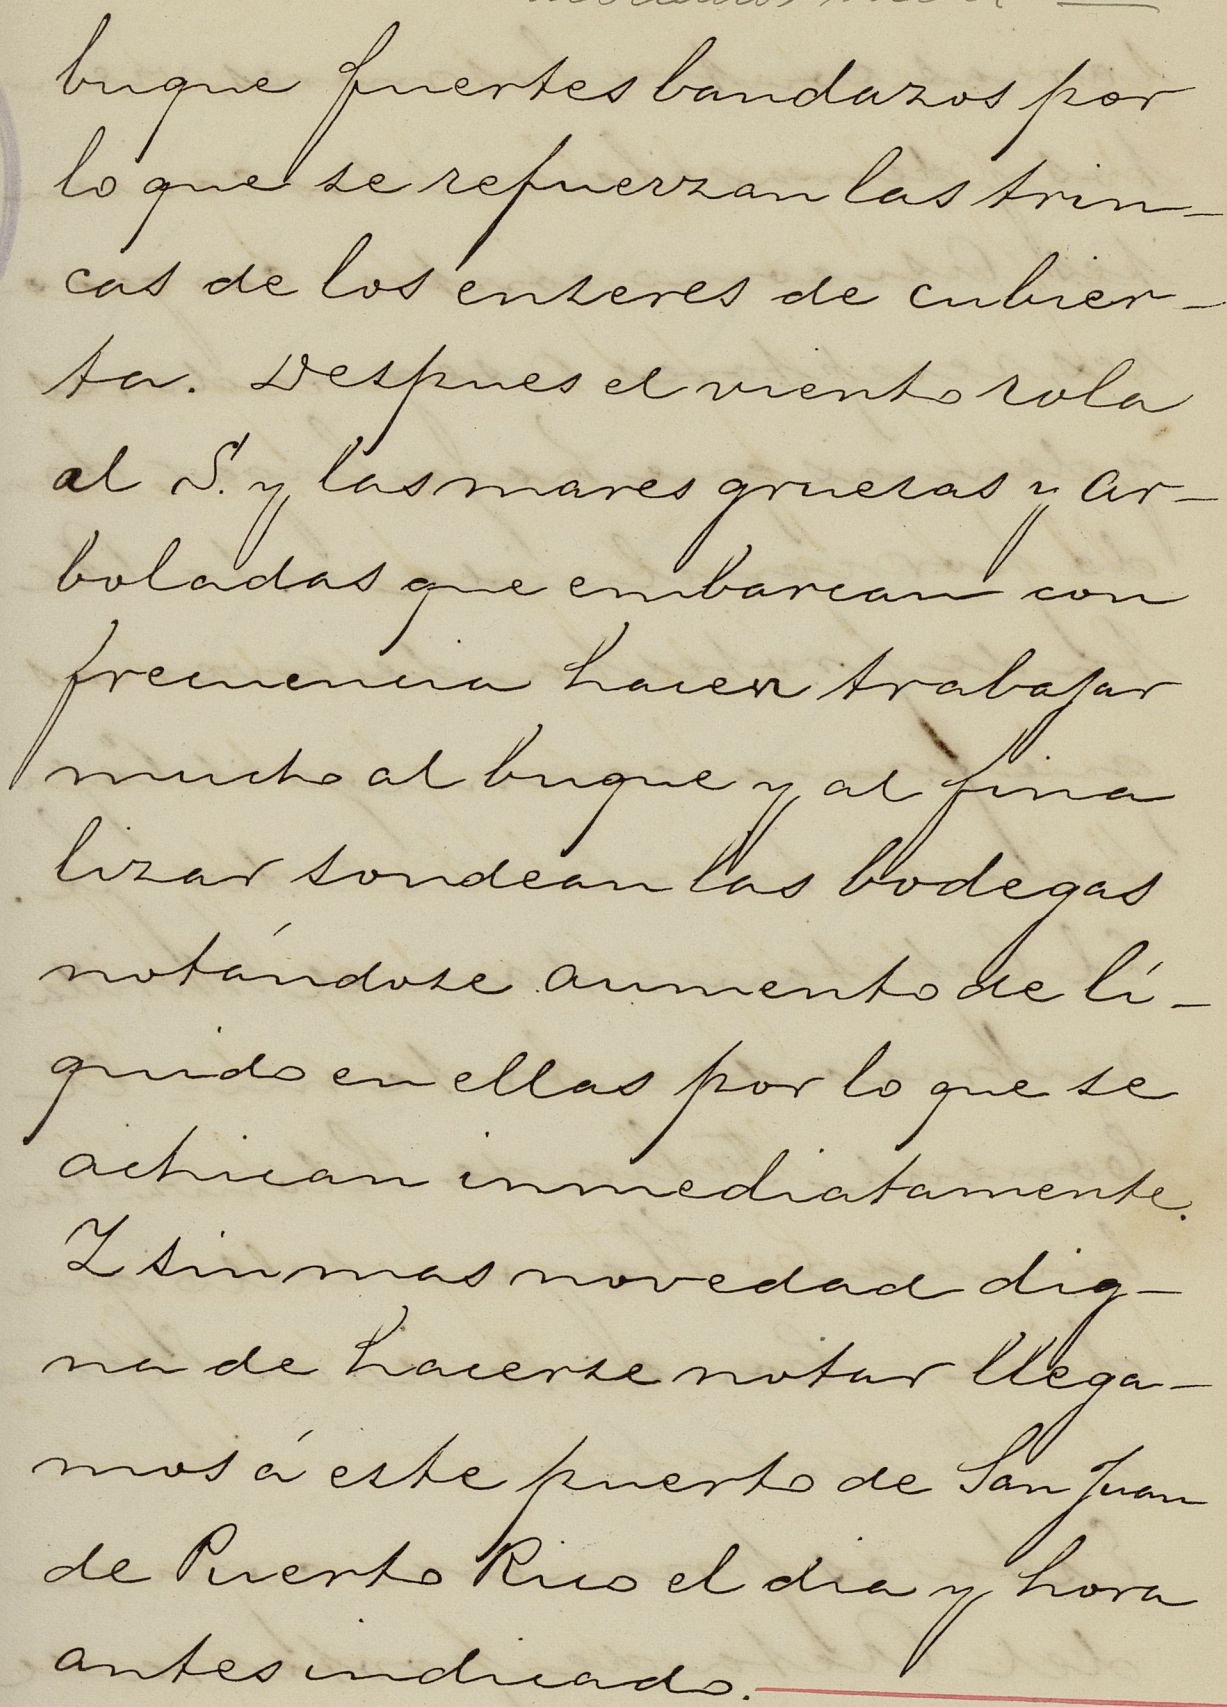 buque fuertes bandazos por
lo que se refuerzan las trin-
cas de los enseres de cubier-
ta. Despues el viento rola
al S. y las mares gruesas y ar-
boladas que embarcan con
frecuencia hacen trabajar
mucho al buque y al fina
lizar sondean las bodegas
notándose aumento de lí-
quido en ellas por lo que se
achican inmediatamente.
Y sin mas novedad dig-
na de hacerse notar llega-
mos á este puerto de San Juan
de Puerto Rico el dia y hora
antes indicado.